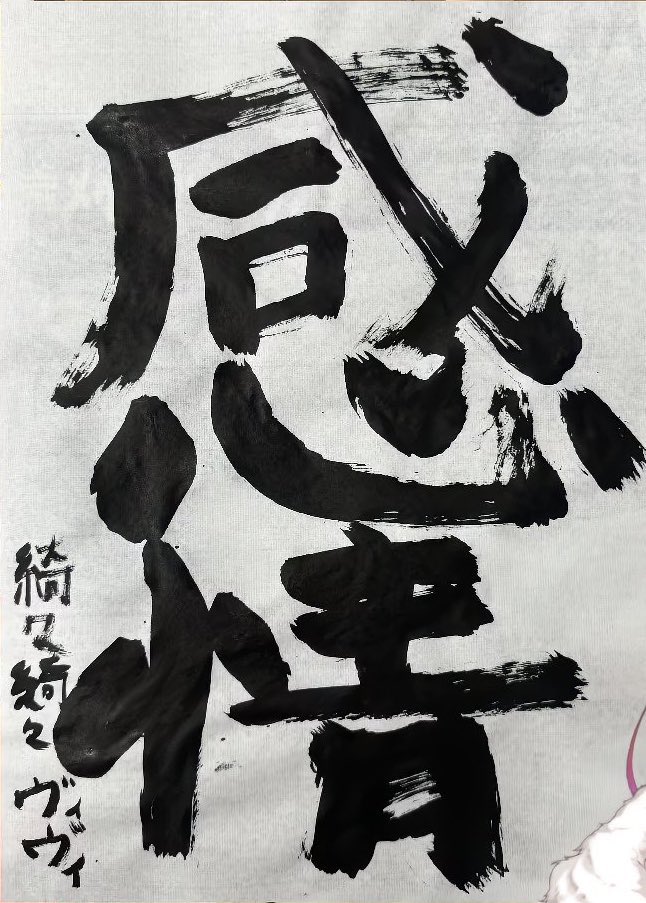 感情
綺々綺々ヴィヴィ